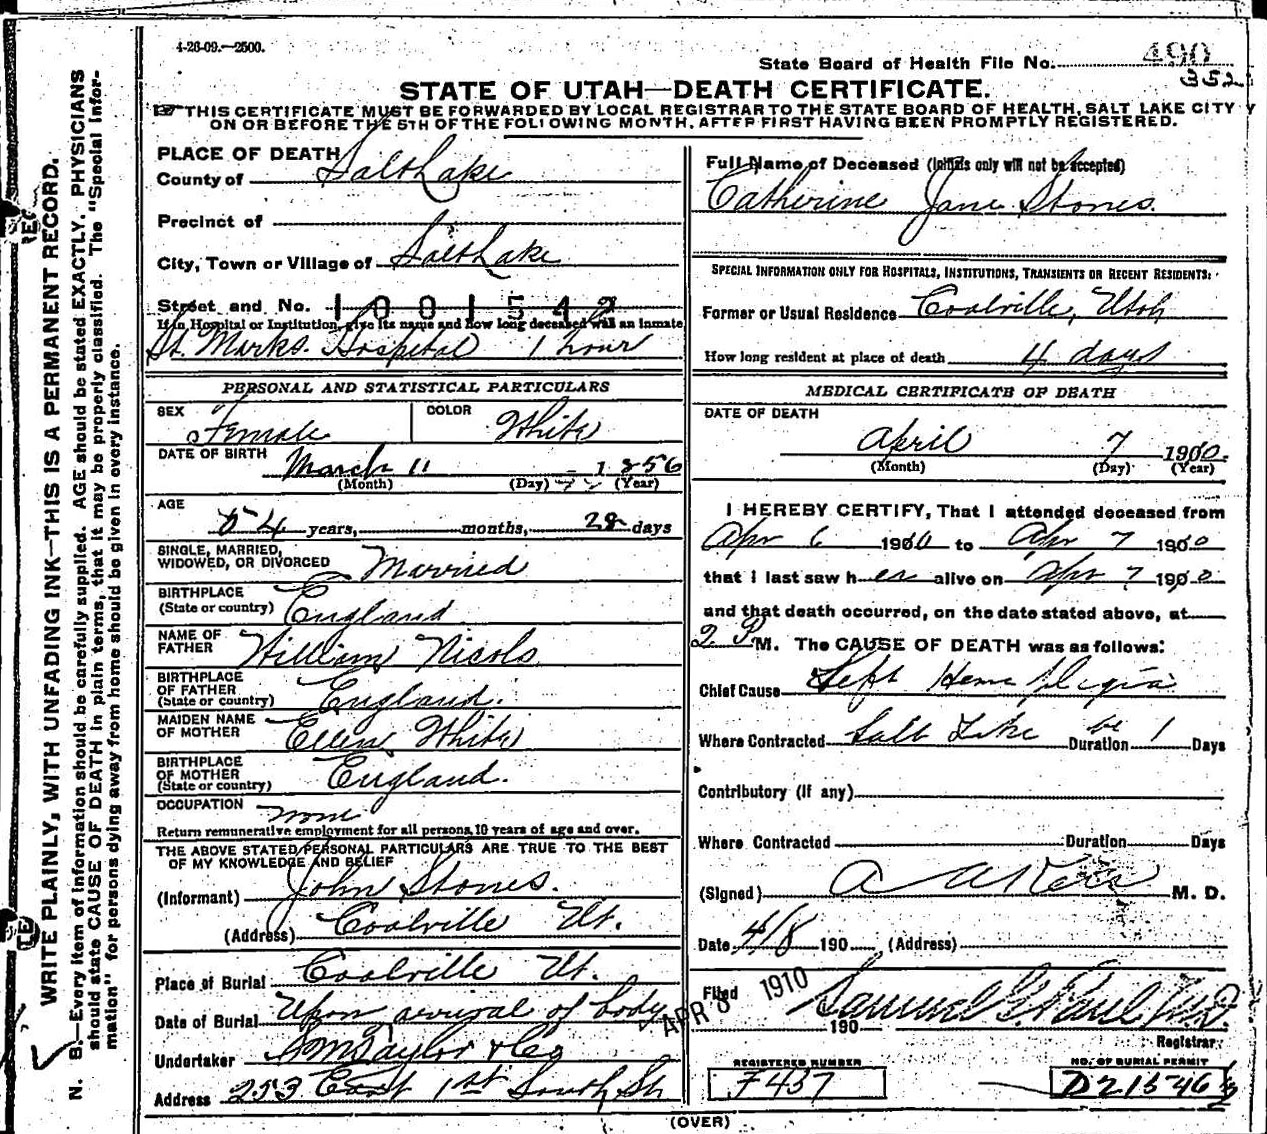 4-26-09.—2500.
State Board of Health File No. 490
352
STATE OF UTAH—DEATH CERTIFICATE.
☞THIS CERTIFICATE MUST BE FORWARDED BY LOCAL REGISTRAR TO THE STATE BOARD OF HEALTH, SALT LAKE CITY
ON OR BEFORE THE 5TH OF THE FOLLOWING MONTH, AFTER FIRST HAVING BEEN PROMPTLY REGISTERED.
WRITE PLAINLY, WITH UNFADING INK—THIS IS A PERMANENT RECORD.
N. B.—Every item of information should be carefully supplied. AGE should be stated EXACTLY. PHYSICIANS
should state CAUSE OF DEATH in plain terms, that it may be properly classified. The "Special Infor-
mation" for persons dying away from home should be given in every instance.
PLACE OF DEATH
County of Salt Lake
Precinct of
City, Town or Village of Salt Lake
Street and No. 1001542
If in Hospital or Institution, give its name and how long deceased was an inmate
St. Marks. Hospital 1 hour
PERSONAL AND STATISTICAL PARTICULARS
SEX Female COLOR White
DATE OF BIRTH March 11 1856
(Month) (Day) (Year)
AGE 54 years, months, 28 days
SINGLE, MARRIED,
WIDOWED, OR DIVORCED Married
BIRTHPLACE
(State or country) England
NAME OF
FATHER William Nicols
BIRTHPLACE
OF FATHER
(State or country) England.
MAIDEN NAME
OF MOTHER Ellen White
BIRTHPLACE
OF MOTHER
(State or country) England.
OCCUPATION none
Return remunerative employment for all persons 10 years of age and over.
THE ABOVE STATED PERSONAL PARTICULARS ARE TRUE TO THE BEST
OF MY KNOWLEDGE AND BELIEF
(Informant) John Stones.
(Address) Coalville Ut.
Place of Burial Coalville Ut.
Date of Burial Upon arrival of body
Undertaker S M Taylor & Co
Address 253 East 1st South St
Full Name of Deceased (Initials only will not be accepted)
Catherine Jane Stones.
SPECIAL INFORMATION ONLY FOR HOSPITALS, INSTITUTIONS, TRANSIENTS OR RECENT RESIDENTS:
Former or Usual Residence Coalville, Utah
How long resident at place of death 4 days
MEDICAL CERTIFICATE OF DEATH
DATE OF DEATH
April 7 1910.
(Month) (Day) (Year)
I HEREBY CERTIFY, That I attended deceased from
Apr 6 1910 to Apr 7 1910
that I last saw her alive on Apr 7 1910
and that death occurred, on the date stated above, at
2 P M. The CAUSE OF DEATH was as follows:
Chief Cause Left Hemiplegia
Where Contracted Salt Lake Duration 1 Days
Contributory (if any)
Where Contracted Duration Days
(Signed) M. D.
Date 4/8 190 (Address)
Filed APR 8 1910 190 Samuel G. Paul M.D.
Registrar
REGISTERED NUMBER
F437
NO. OF BURIAL PERMIT
D21546
(OVER)